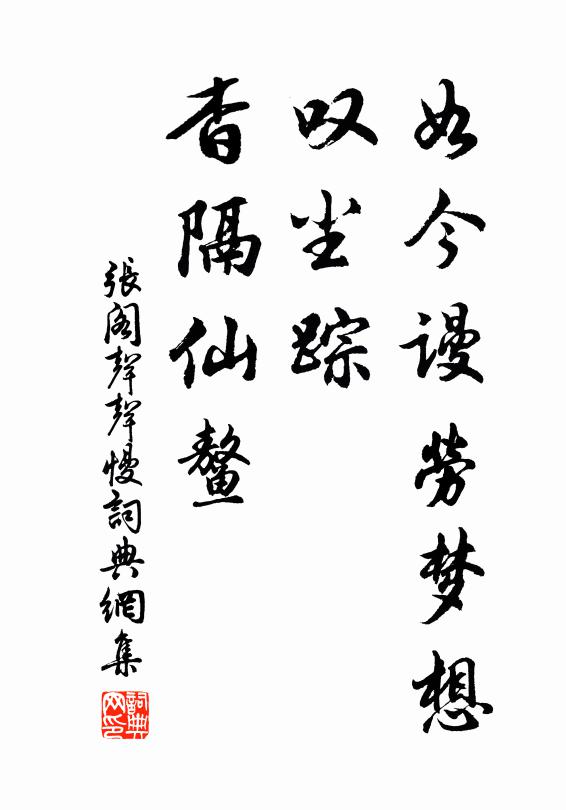 如今谩劳梦想
叹尘踪
杳隔仙鳌
張阁聲聲慢詞典網集
詞典網印